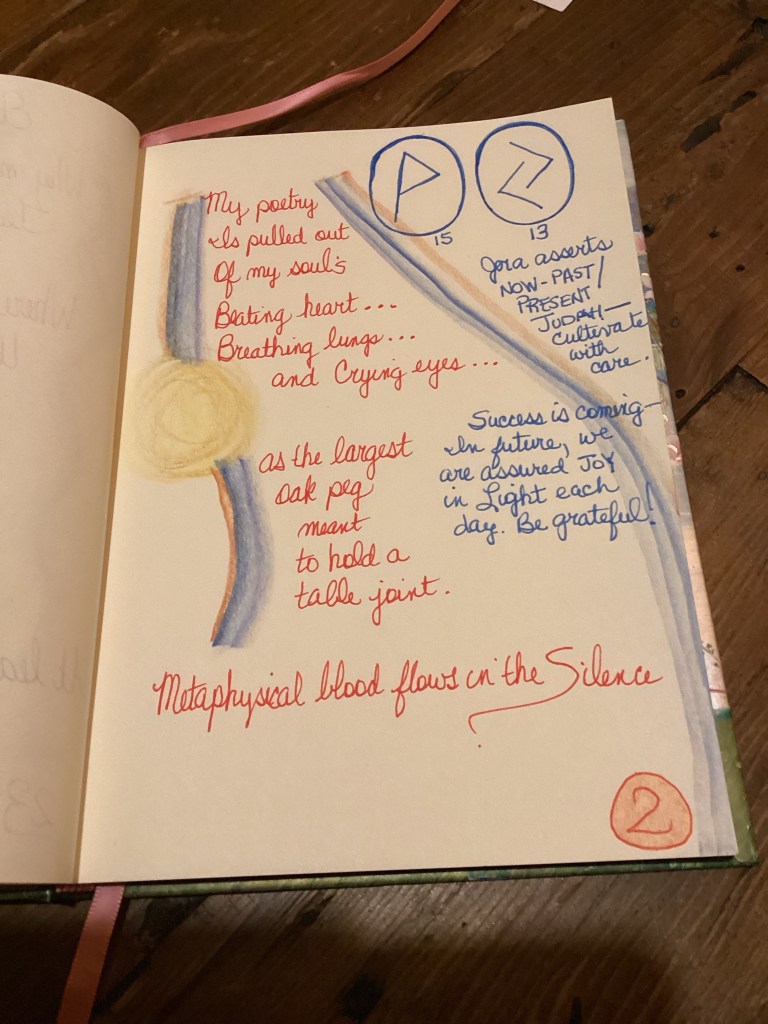 My poetry
Is pulled out
Of my soul's
Beating heart...
Breathing lungs...
and Crying eyes...
as the largest
Oak peg
meant
to hold a
table joint.
15
13
Jera asserts
NOW-PAST/
PRESENT
JUDAH—
cultivate
with
care.
Success is coming—
In future, we
are assured JOY
in Light each
day. Be grateful!
Metaphysical blood flows in the Silence
2